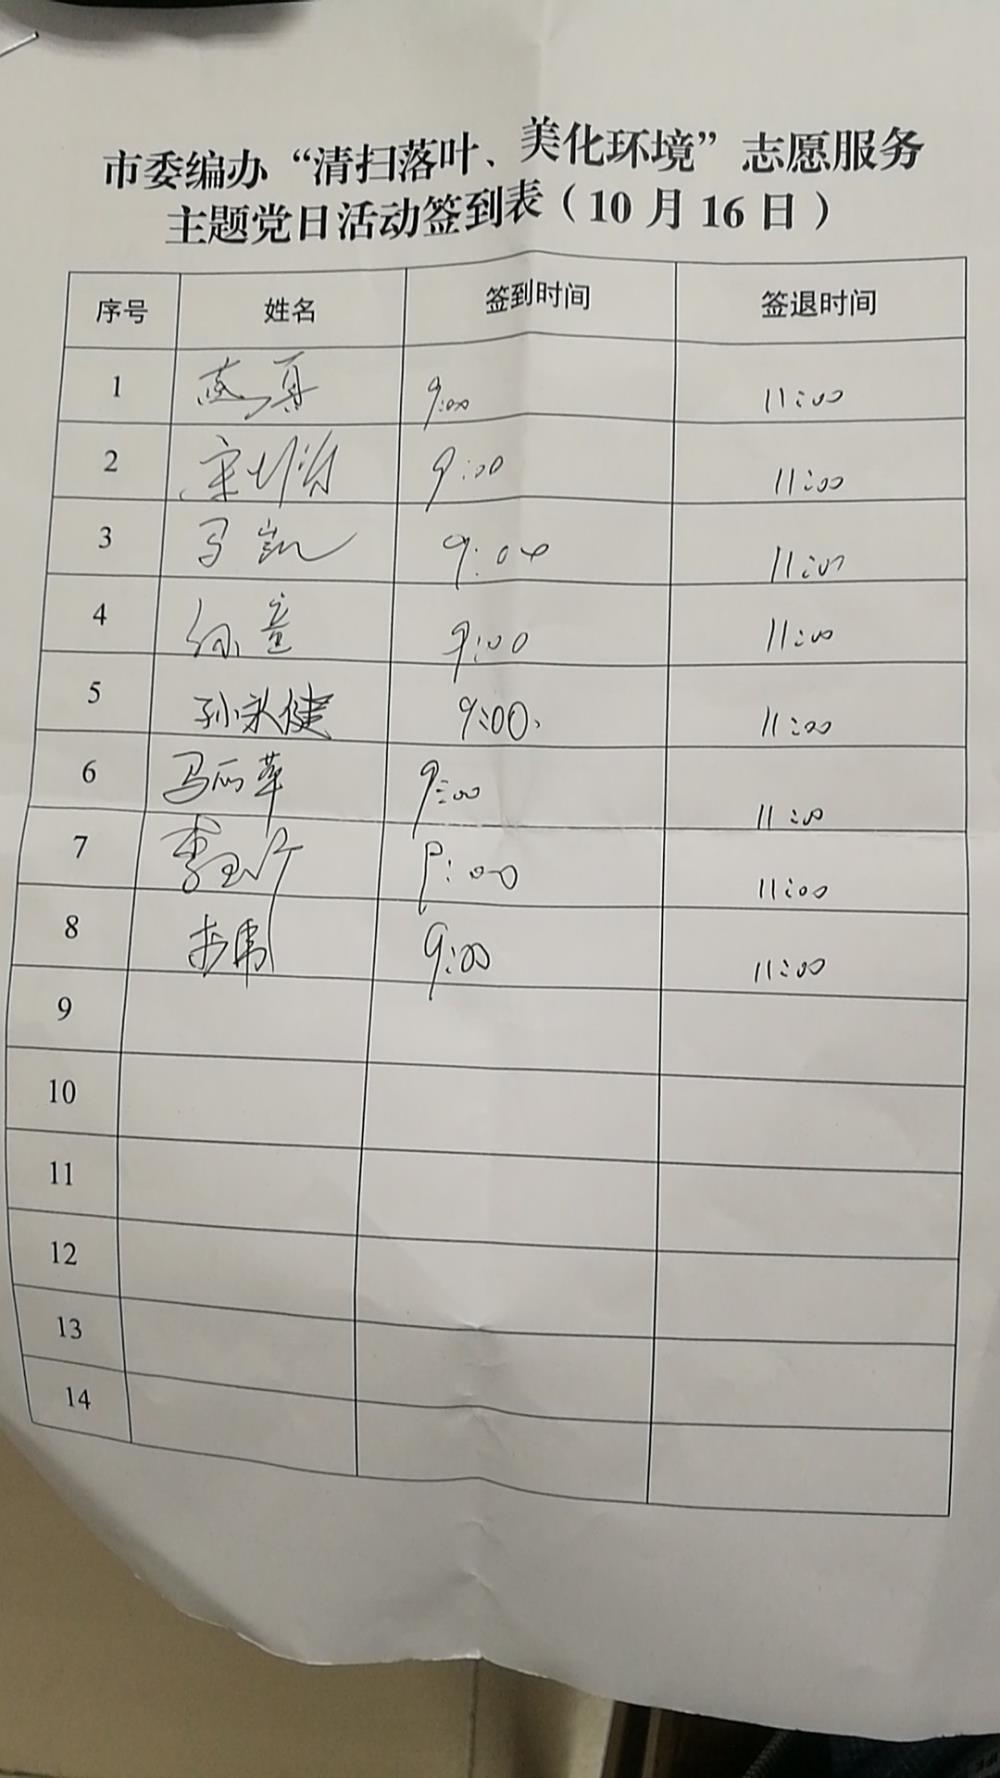 市委编办“清扫落叶、美化环境”志愿服务
主题党日活动签到表（10月16日）
序号 姓名 签到时间 签退时间
1 9:00 11:00
2 9:00 11:00
3 马凯 9:00 11:00
4 徐童 9:00 11:00
5 孙永健 9:00. 11:00
6 马丽苹 9:00 11:00
7 9:00 11:00
8 9:00 11:00
9
10
11
12
13
14